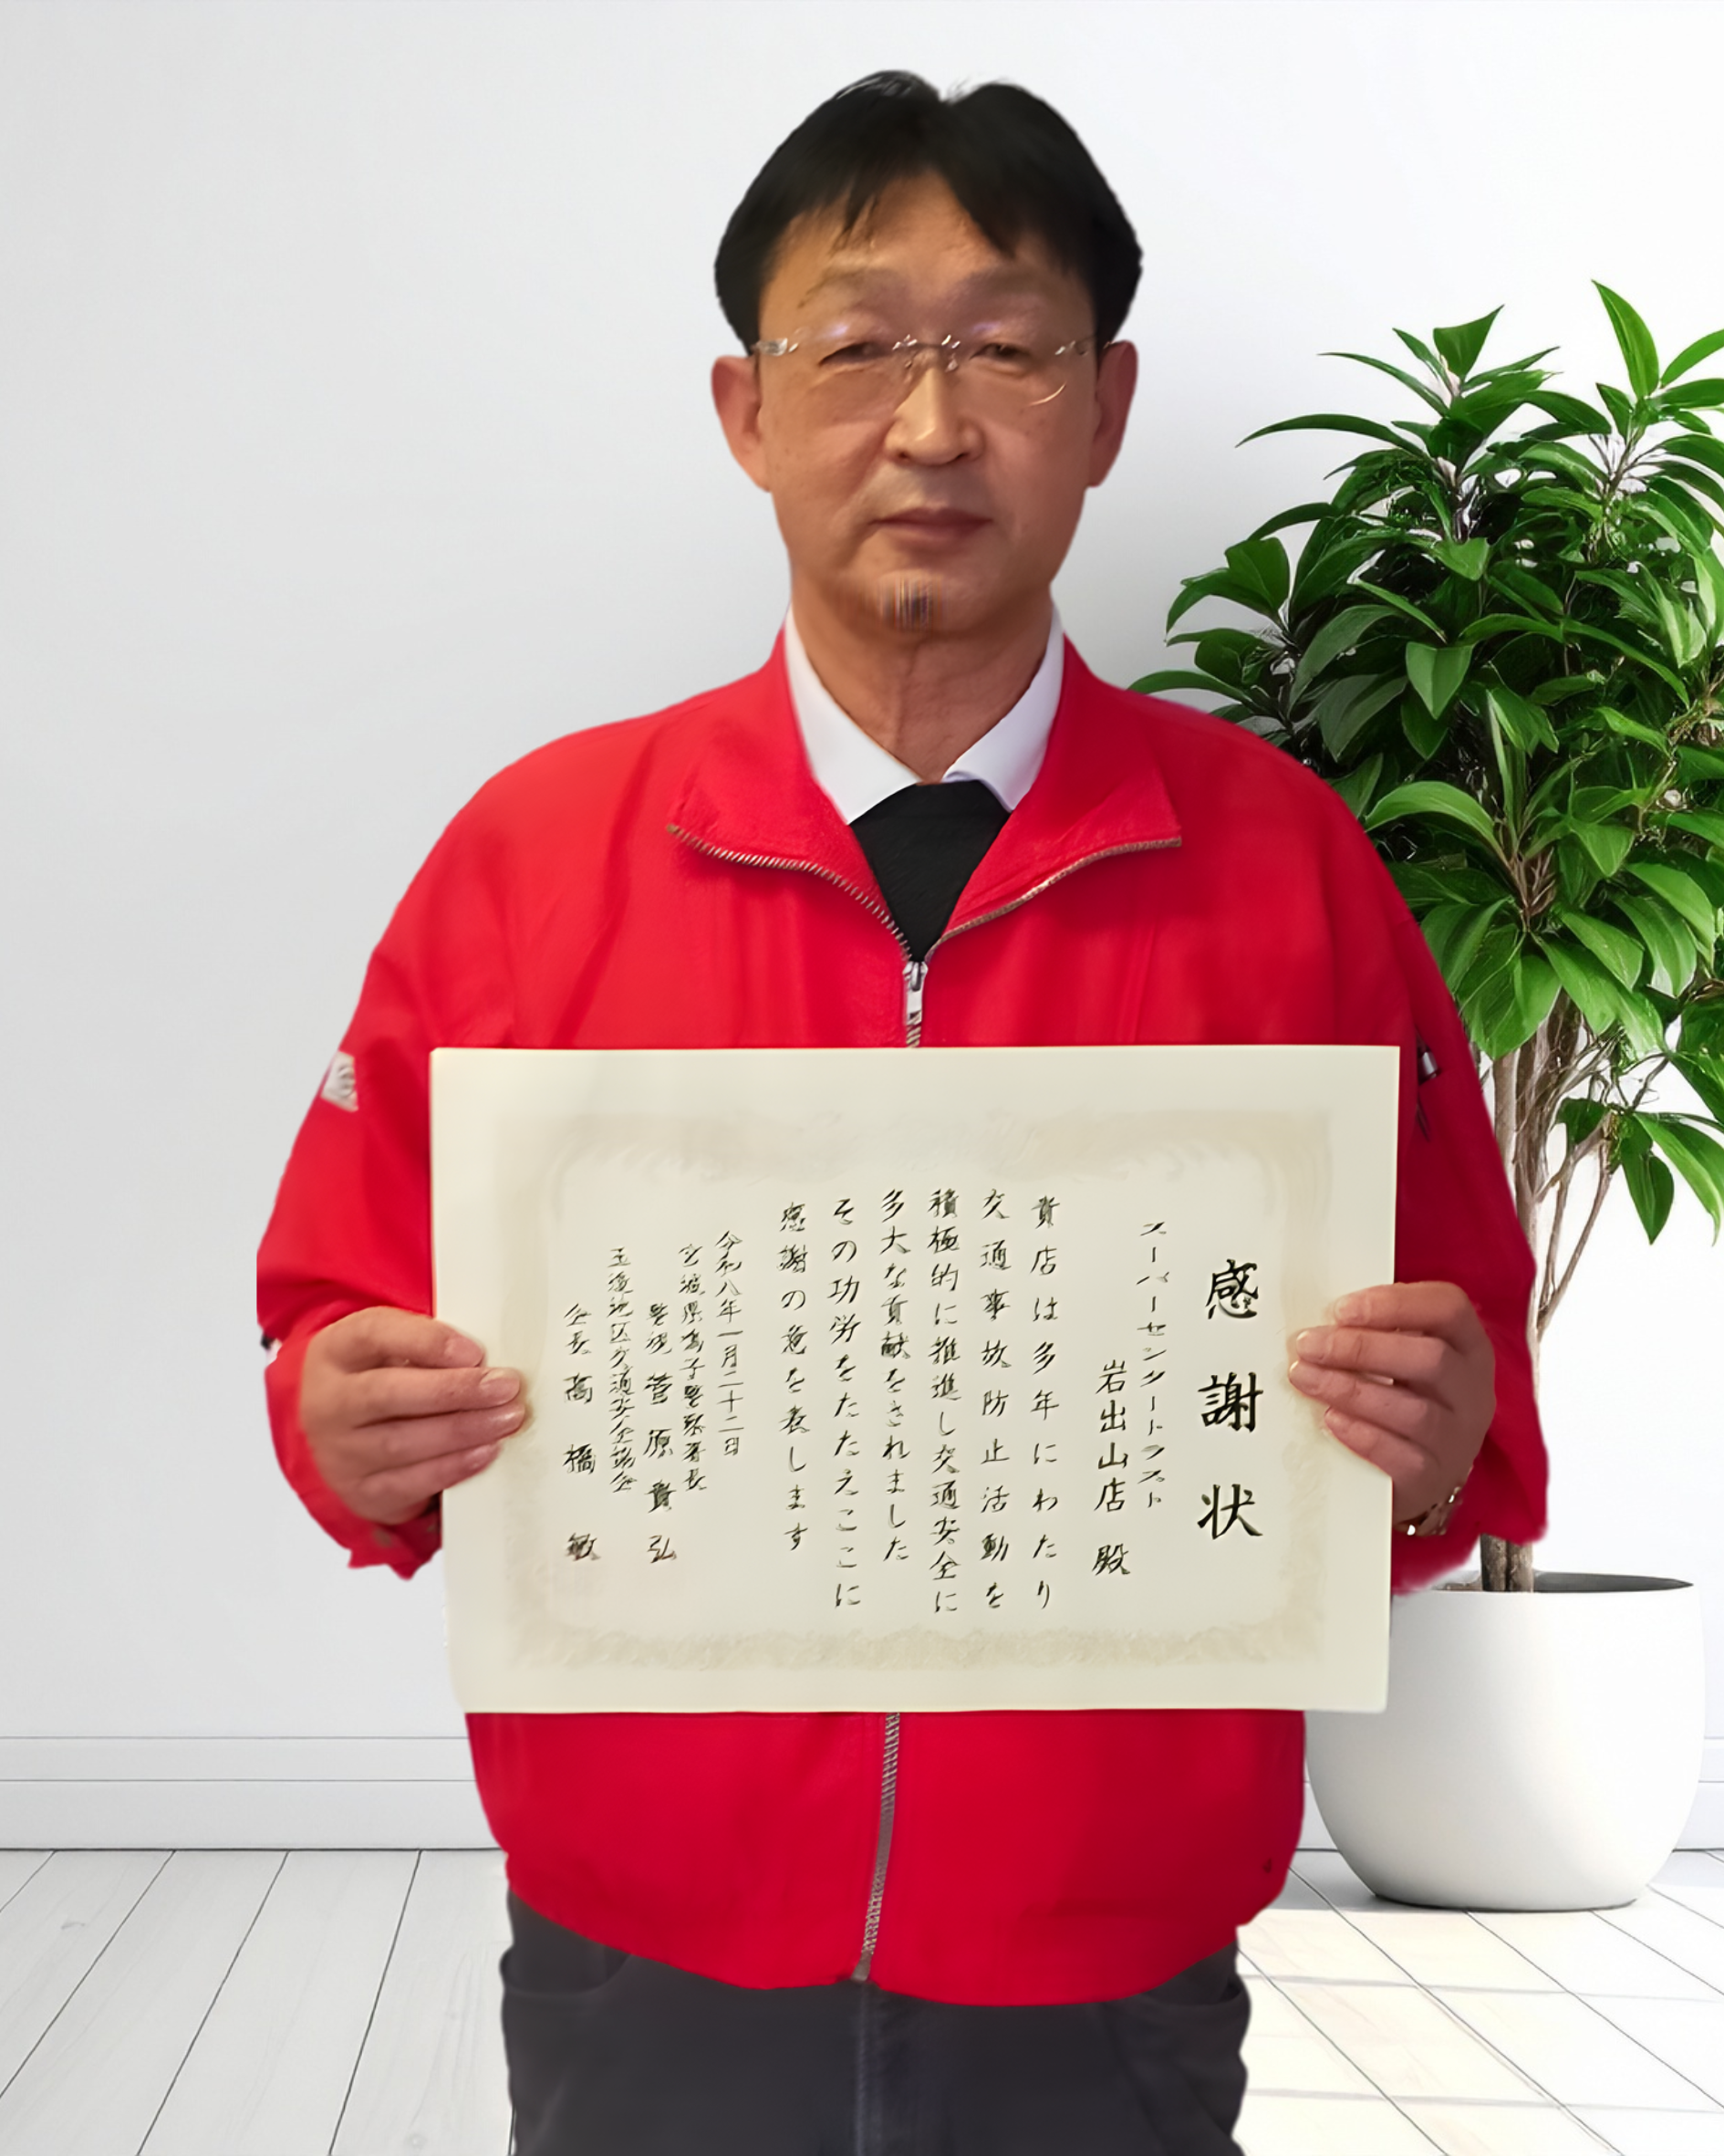 感謝状
スーパーセンタートラスト
岩出山店 殿
貴店は多年にわたり
交通事故防止活動を
積極的に推進し交通安全に
多大な貢献をされました
その功労をたたえここに
感謝の意を表します
令和八年一月二十二日
宮城県鳴子警察署長
警視 菅原 貴弘
玉造地区交通安全協会
会長 高橋 敏